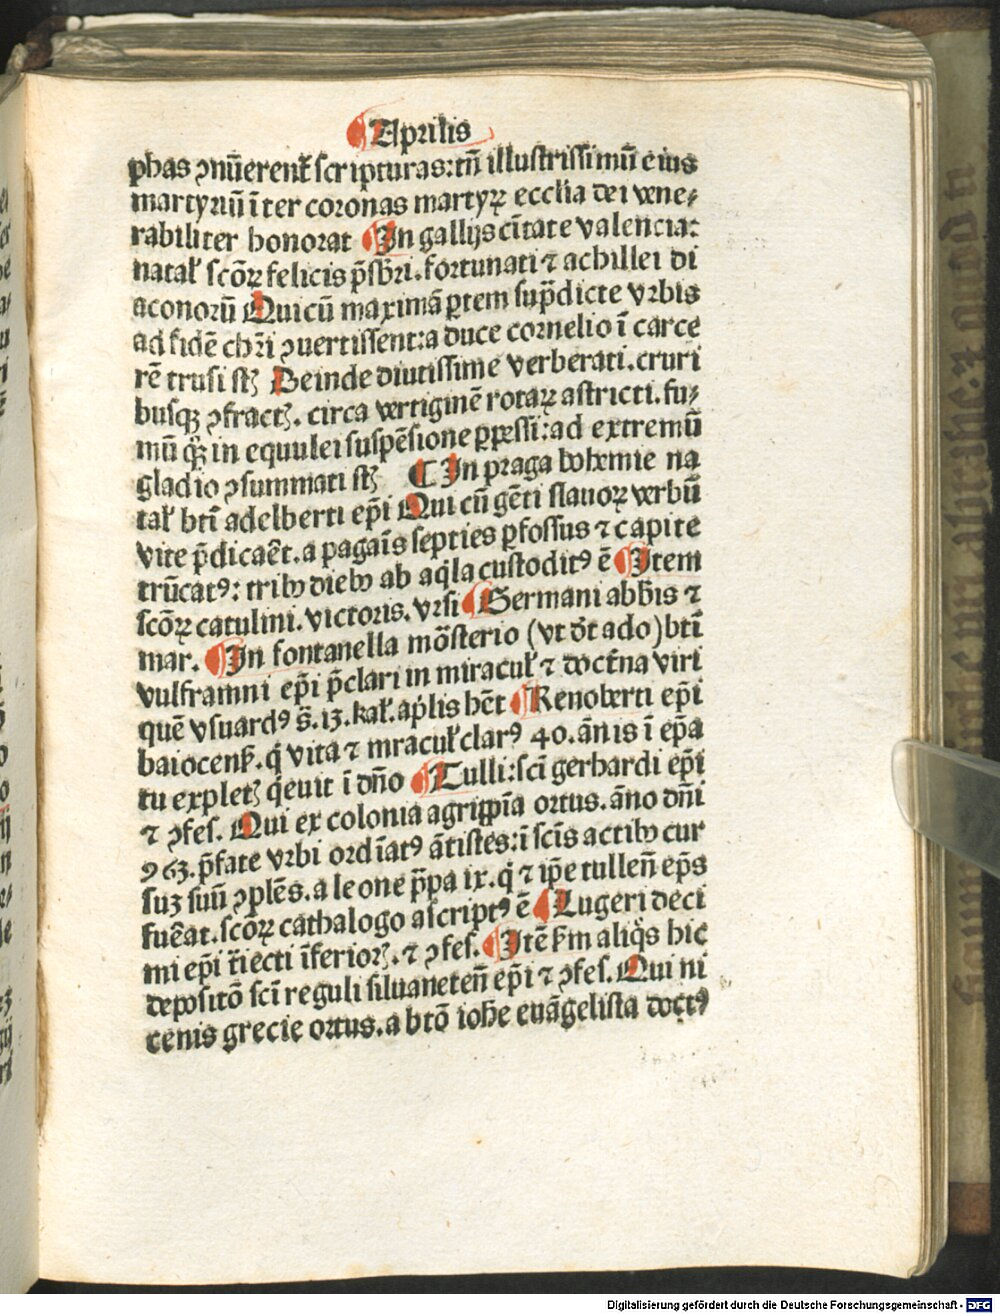 Aprilis
phas ꝯnūerent̄ scripturas: tn̄ illustrissimū eius
martyriū īter coronas martyrꝝ ecclīa dei vene⸗
rabiliter honorat In gallijs cītate valencia:
natal̄ scōꝝ felicis p̄sbr̄i. fortunati ⁊ achillei di
aconorū Qui cū maximā ꝑtem sup̄dicte vrbis
ad fidē chr̄i ꝯuertissent: a duce cornelio ī carce
rē trusi st̄ꝫ Deinde diutissime verberati. cruri
busqꝫ ꝯfractꝫ. circa vertiginē rotaꝝ astricti. fu⸗
mū qꝫ in equulei suspēsione ꝑpessi: ad extremū
gladio ꝯsummati st̄ꝫ ¶ In praga bohemie na
tal̄ btī adelberti ep̄i Qui cū gēti slauoꝝ verbū
vite p̄dicaēt. a pagāis septies ꝑfossus ⁊ capite
trūcatꝰ: tribꝫ diebꝫ ab aq̄la custoditꝰ ē Item
scōꝝ catulini. victoris. vrsi Germani abbīs ⁊
mar. In fontanella mōsterio (vt dt̄ ado) btī
vulframni ep̄i p̄clari in miracul̄ ⁊ doctīna viri
quē vsuardꝰ s̄. 13. kal̄. ap̄lis hēt Renoberti ep̄i
baiocenſ̄. q̄ vita ⁊ miracul̄ clarꝰ 40. ānis ī ep̄a
tu expletꝫ q̄euit ī dn̄o Tulli: scī gerhardi ep̄i
⁊ ꝯfes. Qui ex colonia agrippīa ortus. āno dn̄i
963. p̄fate vrbi ordīatꝰ ātistes: ī scīs actibꝫ cur
suꝫ suū ꝯplēs. a leone p̄pa ix. q̄ ⁊ ip̄e tullen̄ ep̄s
fuēat. scōꝝ cathalogo ascriptꝰ ē Lugeri deci
mi ep̄i t̄iecti īferiorꝫ. ⁊ ꝯfes. Itē ẜm aliq̄s hic
depositō scī reguli siluaneten̄ ep̄i ⁊ ꝯfes. Qui ni
cenis grecie ortus. a btō ioh̄e euāgelista doctꝰ
Digitalisierung gefördert durch die Deutsche Forschungsgemeinschaft - DFG